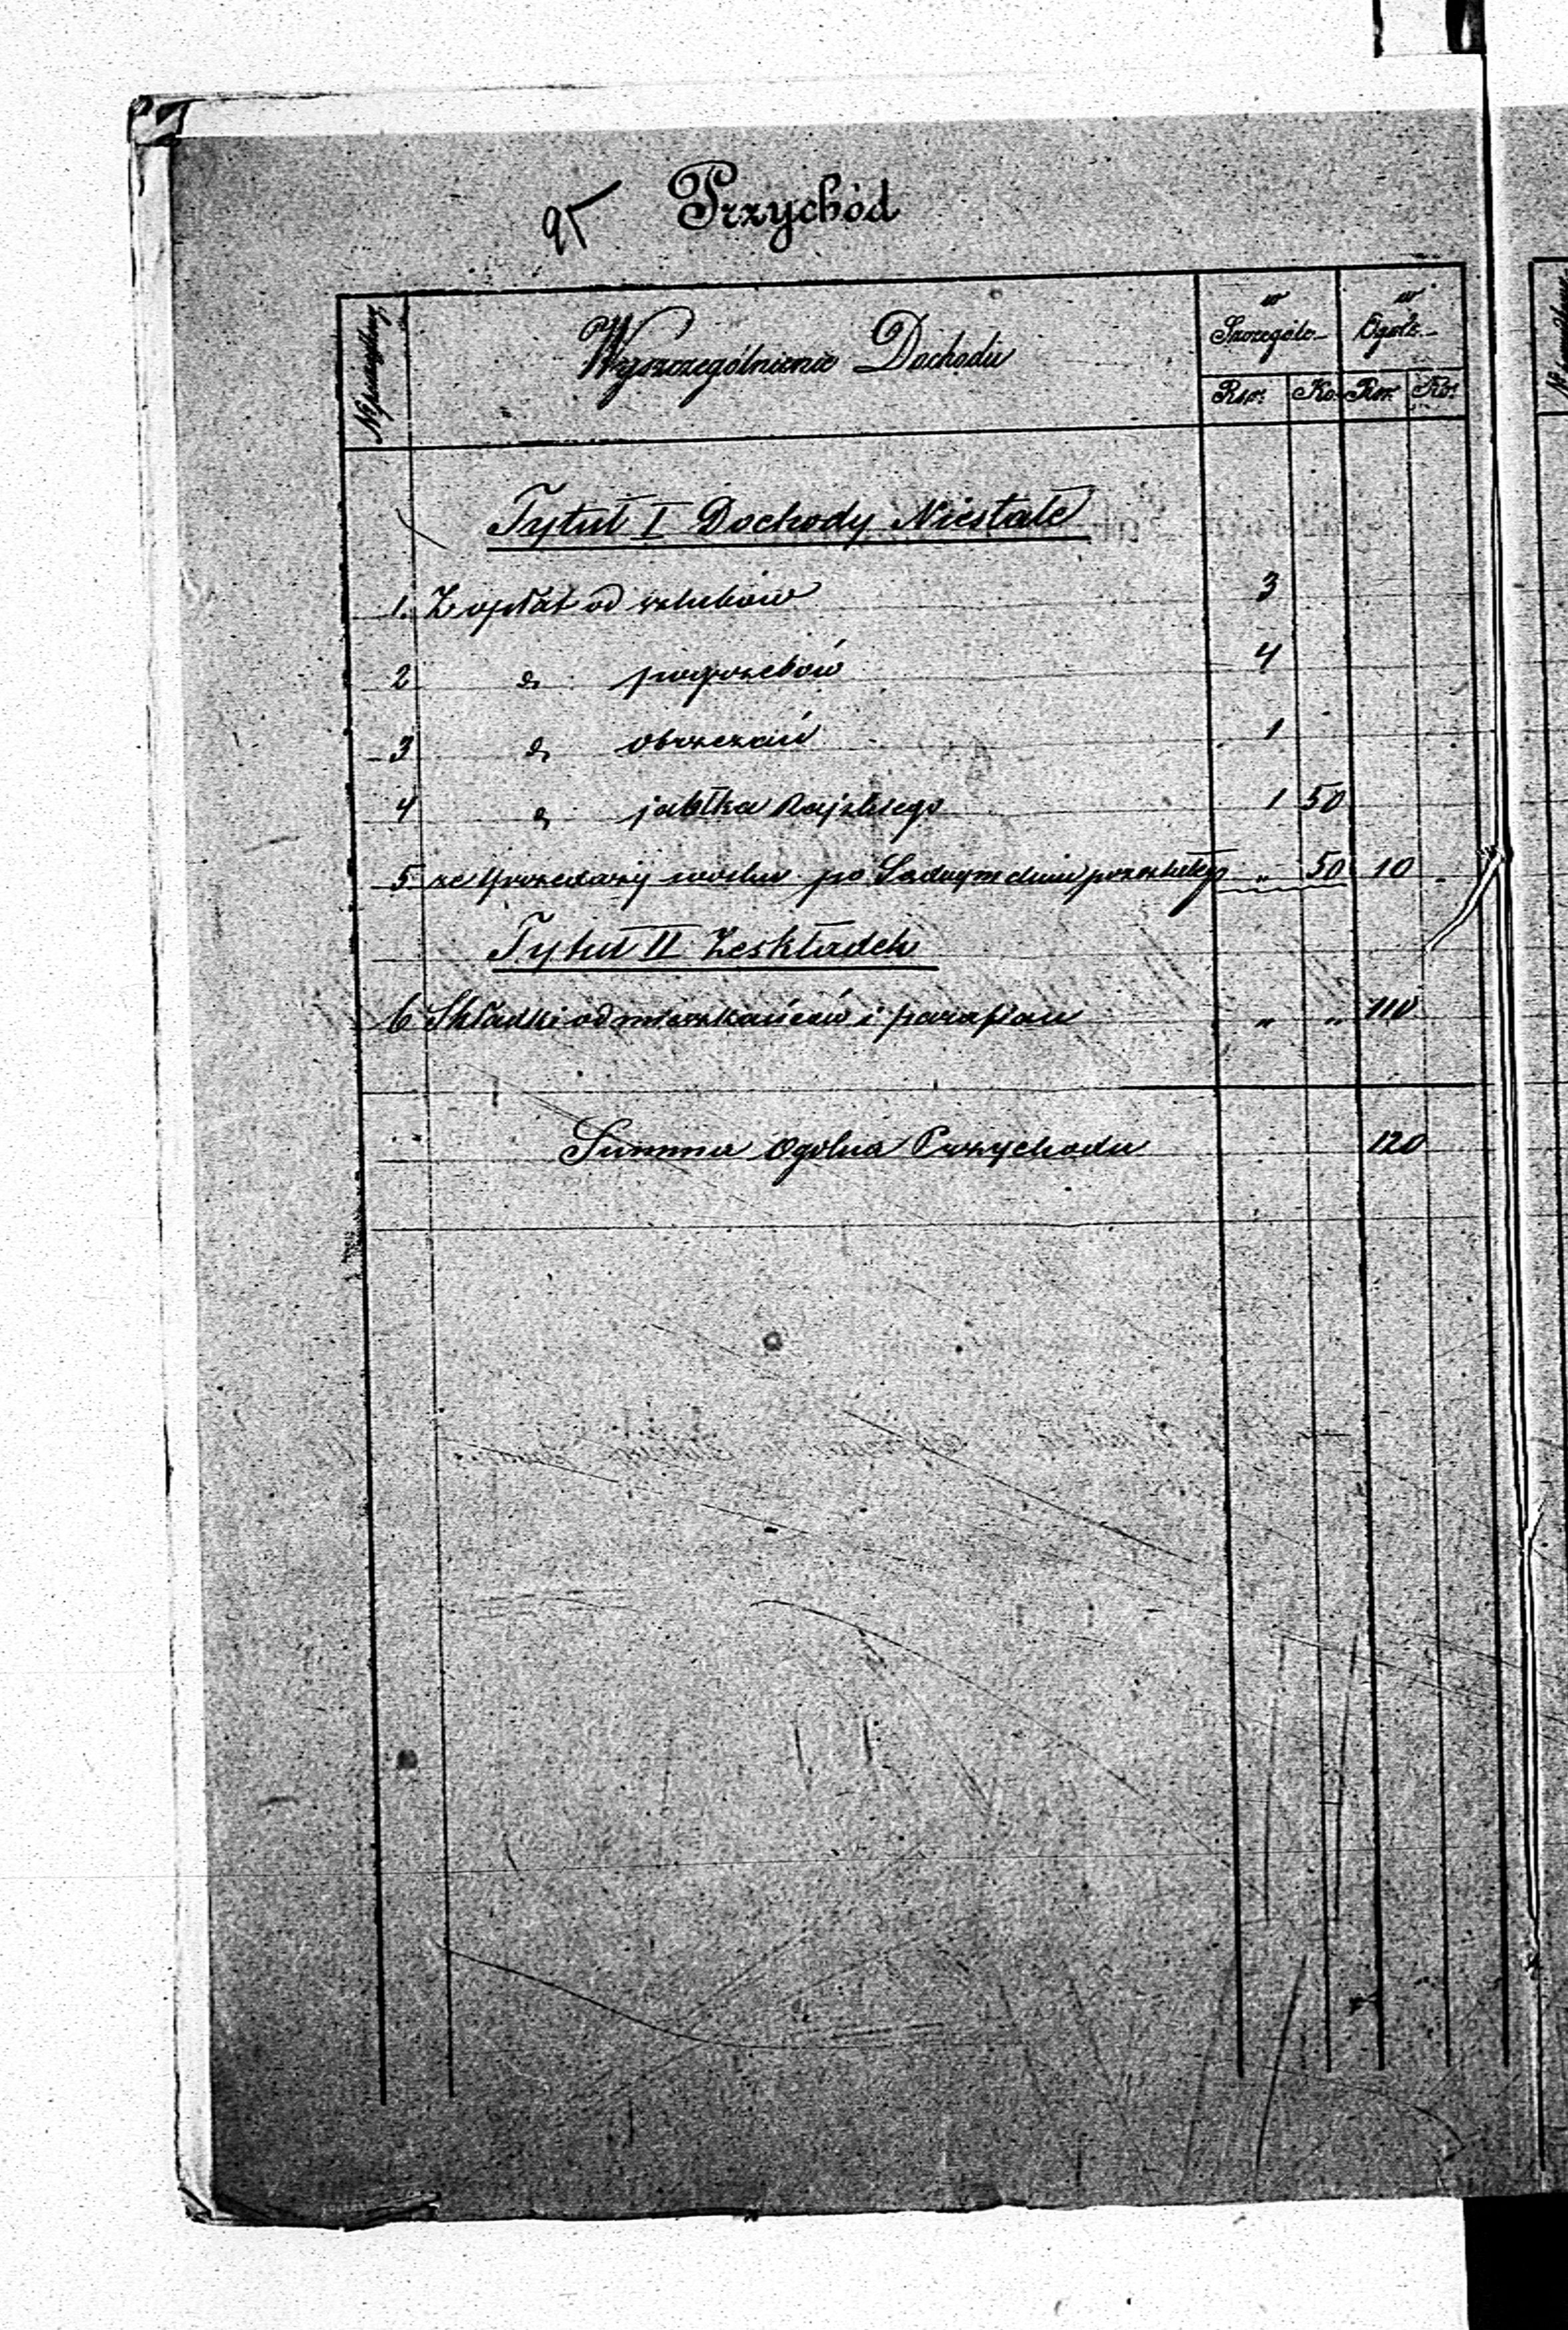 95 Przychód
N porządkowy
Wyszczególnienie Dochodu
w Szczególe
w Ogóle
Rsr. Ko. Rsr. Ko.
Tytuł I Dochody Niestałe
1. Z opłat od szlubów 3
2 " pogrzebów 4
3 " obrzezań 1
4 " jabłka Rajskiego 1 50
5 ze sprzedaży wosku po Sądnym dniu pozostałego " 50 10 -
Tytuł II Zeskładek
6 Składki od mieszkańców i parafian " " 110
Summa Ogólna Przychodu 120